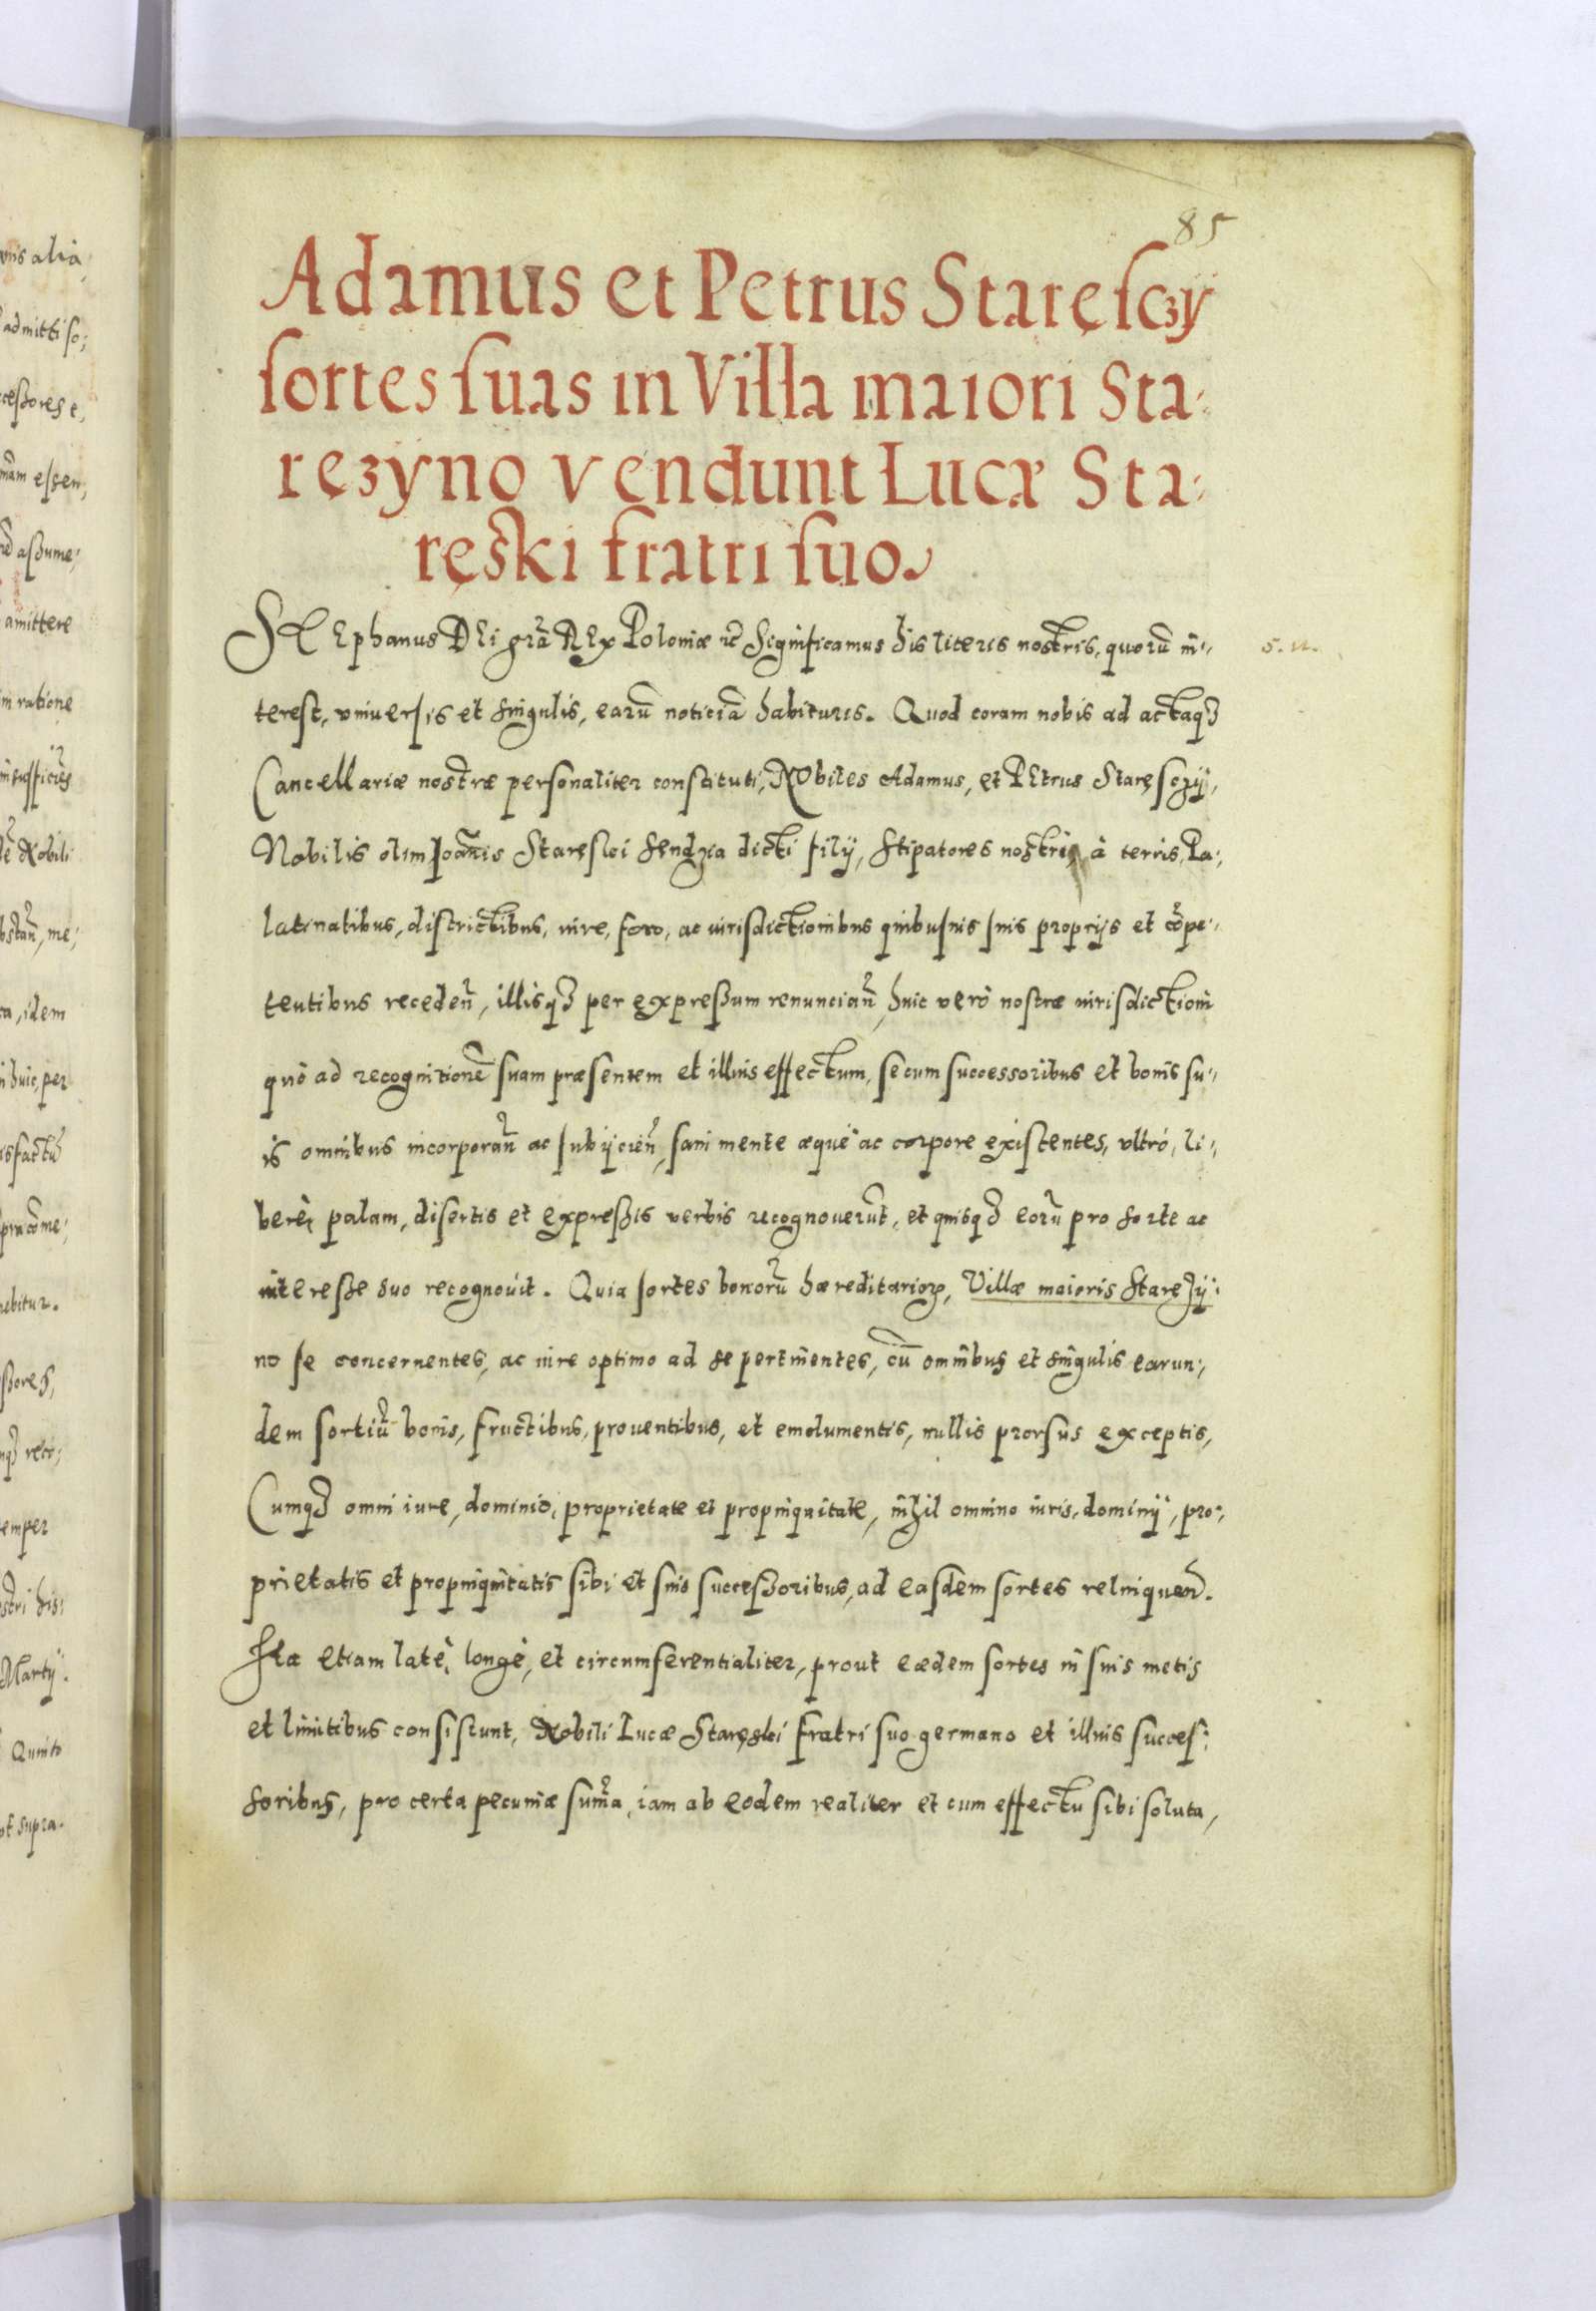 85
Adamus et Petrus Staręsczy
sortes suas in Villa maiori Sta-
ręzyno vendunt Lucæ Sta-
ręski fratri suo.
STEphanus DEi grã REx Poloniæ &c̃ Significamus his literis nostris, quorũ in-
terest, vniuersis et singulis, earũ noticiã habituris. Quod coram nobis ad actaqꝫ
Cancellariæ nostræ personaliter constituti, NObiles Adamus, et PEtrus Staręsczij,
Nobilis olim Joãnis Staręski Sendzia dicti filij, stipatores nostri, à terris, Pa-
latinatibus, districtibus, iure, foro, ac iurisdictionibus quibusuis suis proprijs et cõpe-
tentibus receden̄, illisqꝫ per expreßum renuncian̄, huic verò nostræ iurisdictioni
quò ad recognitionẽ suam præsentem et illius effectum, se cum successoribus et bonis su-
is omnibus incorporan̄ ac subijcien̄, sani mente æquè ac corpore existentes, vltrò, li-
berè, palam, disertis et expreßis verbis recognouerũt, et quisqꝫ eorũ pro sorte ac
intereße suo recognouit. Quia sortes bonorũ hæreditarioꝝ, Villæ maioris Starezij-
no se concernentes, ac iure optimo ad se pertinentes, cũ omnibus et singulis earun-
dem sortiũ bonis, fructibus, prouentibus, et emolumentis, nullis prorsus exceptis,
Cumqꝫ omni iure, dominio, proprietate et propinquitate, nihil omnino iuris, dominij, pro-
prietatis et propinquitatis sibi et suis succeßoribus, ad easdem sortes relinquen̄.
Ita etiam latè, longè, et circumferentialiter, prout eædem sortes in suis metis
et limitibus consistunt, Nobili Lucæ Staręski fratri suo germano et illius succes-
soribus, pro certa pecuniæ sum̃a, iam ab eodem realiter et cum effectu sibi soluta,